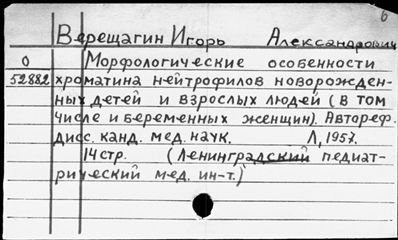 б
Верещагин Игорь Александрович
0 Морфологические особенности
52882 хроматина нейтрофилов новорожден-
ных детей и взрослых людей (в том
числе и беременных женщин). Автореф.
дисс. канд. мед. наук. Л, 1957.
14 стр. (Ленинградский педиат-
рический мед. ин-т.)